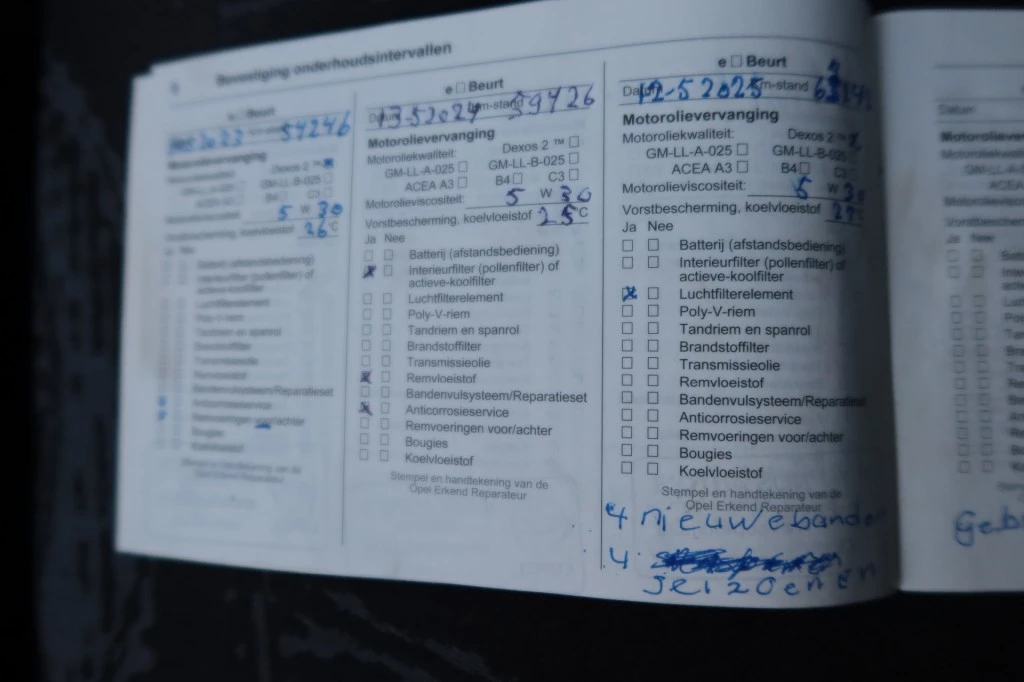 Bevestiging onderhoudsintervallen
e □ Beurt
2023 54246
Motorolievervanging
Dexos 2 ™
GM-LL-A-025 □ GM-LL-B-025 □
B4 □ C3 □
5 W 30
Vorstbescherming, koelvloeistof 26 °C
Ja Nee
Batterij (afstandsbediening)
Interieurfilter (pollenfilter) of
actieve-koolfilter
Luchtfilterelement
Poly-V-riem
Tandriem en spanrol
Brandstoffilter
Transmissieolie
Remvloeistof
Bandenvulsysteem/Reparatieset
Anticorrosieservice
Remvoeringen voor/achter
Bougies
Koelvloeistof
Stempel en handtekening van de
Opel Erkend Reparateur
e □ Beurt
Datum 13-5 2024 km-stand 59426
Motorolievervanging
Motoroliekwaliteit: Dexos 2 ™ □
GM-LL-A-025 □ GM-LL-B-025 □
ACEA A3 □ B4 □ C3 □
Motorolieviscositeit: 5 W 30
Vorstbescherming, koelvloeistof 25 °C
Ja Nee
Batterij (afstandsbediening)
Interieurfilter (pollenfilter) of
actieve-koolfilter
Luchtfilterelement
Poly-V-riem
Tandriem en spanrol
Brandstoffilter
Transmissieolie
Remvloeistof
Bandenvulsysteem/Reparatieset
Anticorrosieservice
Remvoeringen voor/achter
Bougies
Koelvloeistof
Stempel en handtekening van de
Opel Erkend Reparateur
e □ Beurt
Datum 12-5 2025 km-stand
Motorolievervanging
Motoroliekwaliteit: Dexos 2 ™
GM-LL-A-025 □ GM-LL-B-025
ACEA A3 □ B4 □ C3
Motorolieviscositeit: 5 W 30
Vorstbescherming, koelvloeistof °C
Ja Nee
Batterij (afstandsbediening)
Interieurfilter (pollenfilter) of
actieve-koolfilter
Luchtfilterelement
Poly-V-riem
Tandriem en spanrol
Brandstoffilter
Transmissieolie
Remvloeistof
Bandenvulsysteem/Reparatieset
Anticorrosieservice
Remvoeringen voor/achter
Bougies
Koelvloeistof
Stempel en handtekening van de
Opel Erkend Reparateur
4 nieuwe banden
4
seizoenen
Datum
Ja Nee